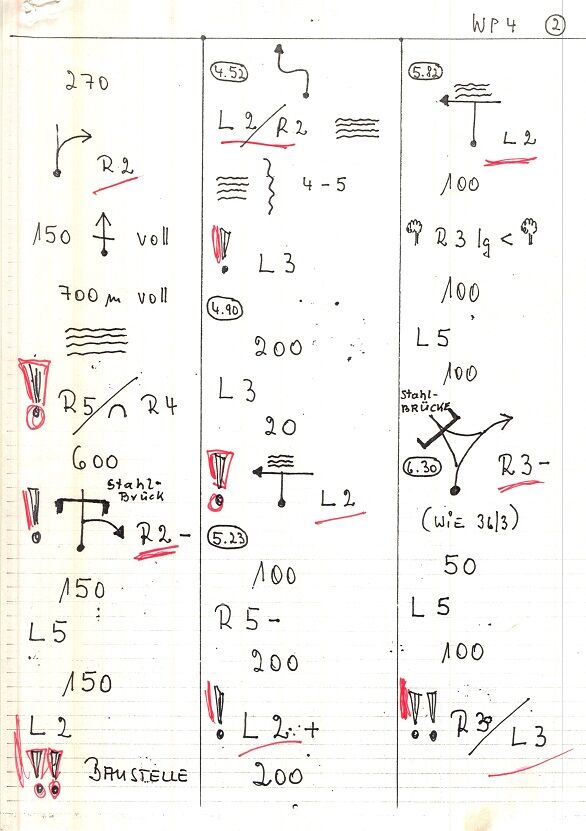 WP 4 2
270
R 2
150 voll
700 m voll
! R 5 / R 4
600
Stahl-
Brück
! R 2 -
150
L 5
150
L 2
!! BAUSTELLE
4.52
L 2 / R 2
4 - 5
! L 3
4.90
200
L 3
20
! L 2
5.23
100
R 5 -
200
! L 2 +
200
5.82
L 2
100
R 3 lg <
100
L 5
100
Stahl-
BRÜCKE
6.30 R 3 -
(WiE 36/3)
50
L 5
100
!! R 3 / L 3